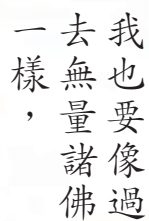 我也要像過
去無量諸佛
一樣，